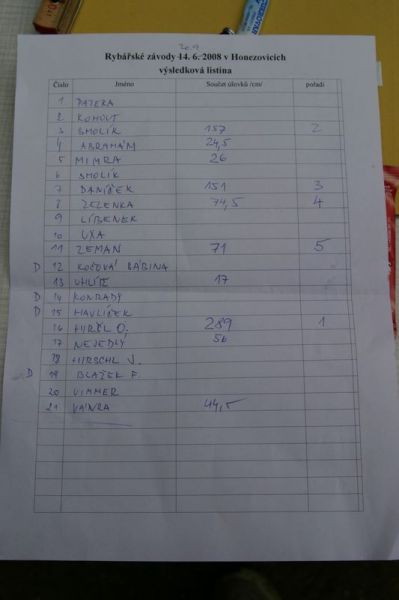 20.9
Rybářské závody 14. 6. 2008 v Honezovicích
výsledková listina
Číslo Jméno Součet úlovků /cm/ pořadí
1 PATERA
2 KOHOUT
3 SMOLÍK 157 2
4 ABRAHÁM 24,5
5 MIMRA 26
6 SMOLÍK
7 DANÍČEK 151 3
8 ZELENKA 74,5 4
9 LÍBENEK
10 UXA
11 ZEMAN 71 5
D 12 KOČOVÁ SABINA
13 UHLÍŘ 17
D 14 KONRÁDY
D 15 HAVLÍČEK
16 HIRŠL O. 289 1
17 NEJEDLÝ 56
18 HIRSCHL J.
D 19 BLAŽEK F.
20 VIMMER
21 VÁVRA 44,5